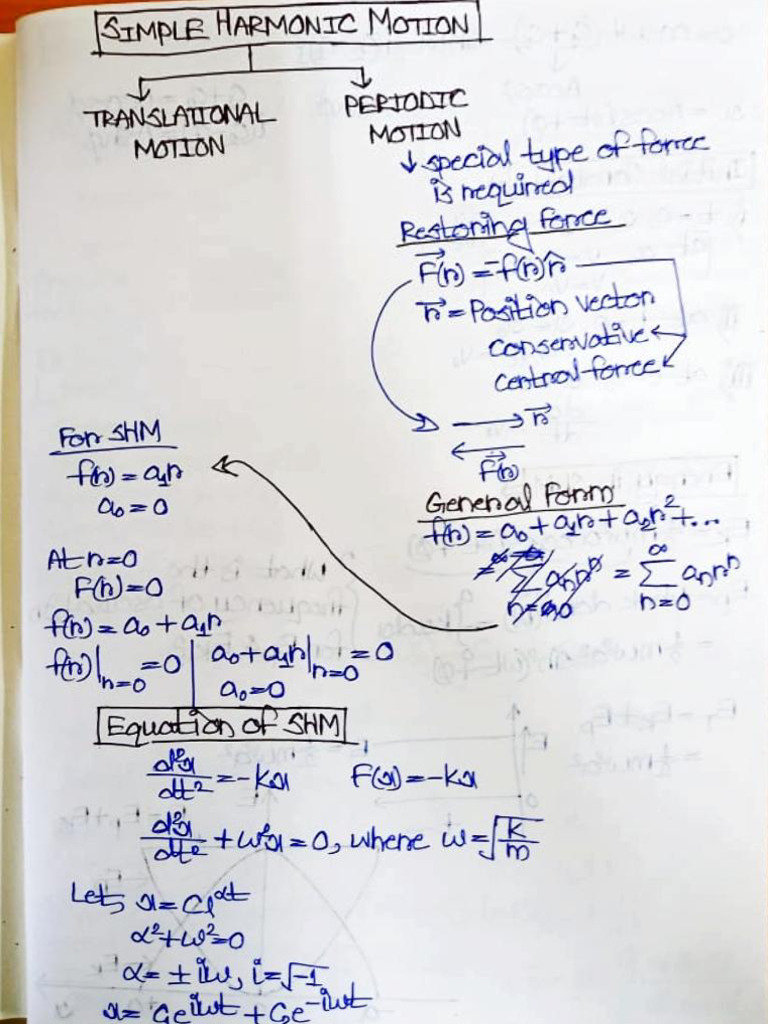 SIMPLE HARMONIC MOTION
TRANSLATIONAL MOTION
PERIODIC MOTION
↓ special type of force
is required
Restoring force
F⃗(r) = -f(r)r̂
r⃗ = Position vector
conservative
central force
→ r⃗
← F⃗(r)
General Form
f(r) = a₀ + a₁r + a₂r² + ...
= ∑_{n=0}^{∞} aₙrⁿ
For SHM
f(r) = a₁r
a₀ = 0
At r=0
F(r) = 0
f(r) = a₀ + a₁r
f(r)|_{r=0} = 0 | a₀ + a₁r|_{r=0} = 0
a₀ = 0
Equation of SHM
d²x/dt² = -kx F(x) = -kx
d²x/dt² + ω²x = 0, where ω = √(k/m)
Let, x = Ce^{αt}
α² + ω² = 0
α = ± iω, i = √-1
x = C₁e^{iωt} + C₂e^{-iωt}